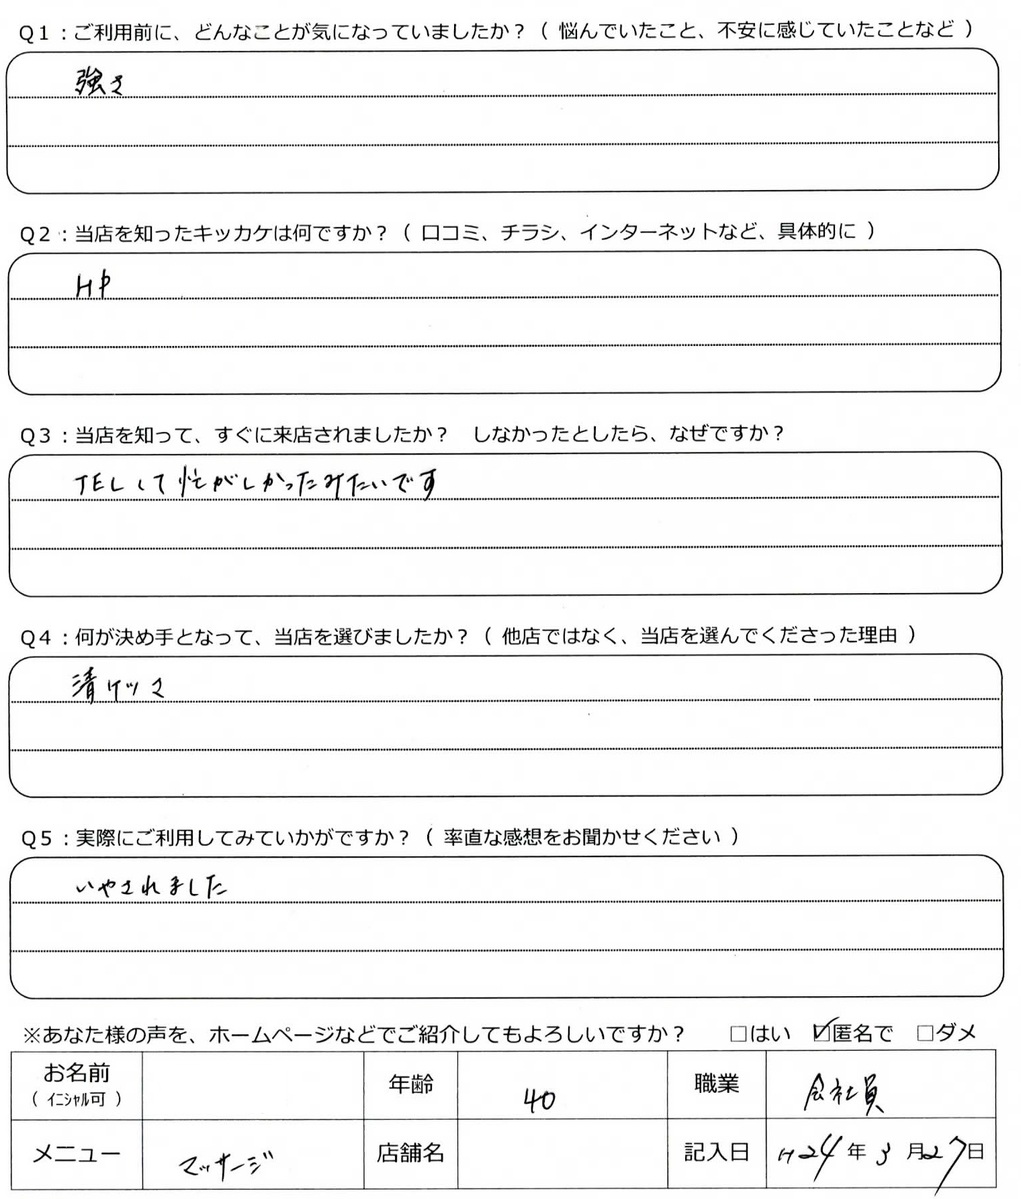 Q1：ご利用前に、どんなことが気になっていましたか？（ 悩んでいたこと、不安に感じていたことなど ）
強さ
Q2：当店を知ったキッカケは何ですか？（ 口コミ、チラシ、インターネットなど、具体的に ）
HP
Q3：当店を知って、すぐに来店されましたか？　しなかったとしたら、なぜですか？
TELして忙がしかったみたいです
Q4：何が決め手となって、当店を選びましたか？（ 他店ではなく、当店を選んでくださった理由 ）
清ケツさ
Q5：実際にご利用してみていかがですか？（ 率直な感想をお聞かせください ）
いやされました
※あなた様の声を、ホームページなどでご紹介してもよろしいですか？　□はい　☑匿名で　□ダメ
お名前
（ ｲﾆｼｬﾙ可 ）
年齢 40 職業 会社員
メニュー マッサージ 店舗名 記入日 H24年3月27日